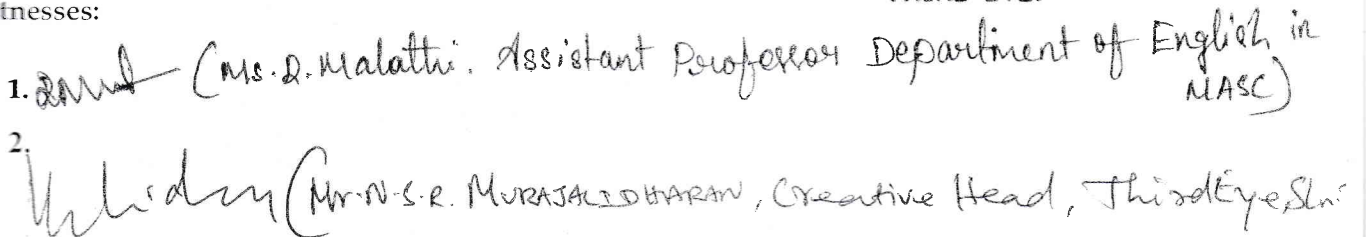 tnesses:
1. (Ms.R.Malathi. Assistant Professor Department of English in
MASC)
2.
(Mr.N.S.R. MURAJALIDHARAN, Creative Head, ThirdEye, Sln.